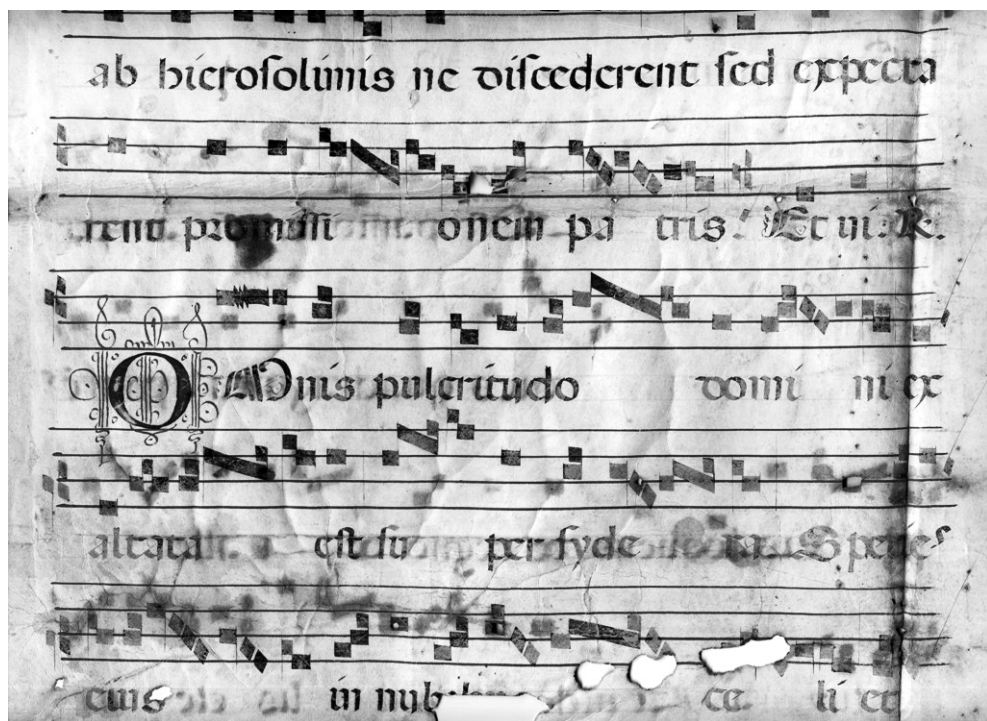 ab hierosolimis ne discederent sed expecta
rent promissi onem pa tris. Et ni. R.
OMnis pulcritudo domi ni ex
altata est su per syde ra Speties
eius in nub ce li et